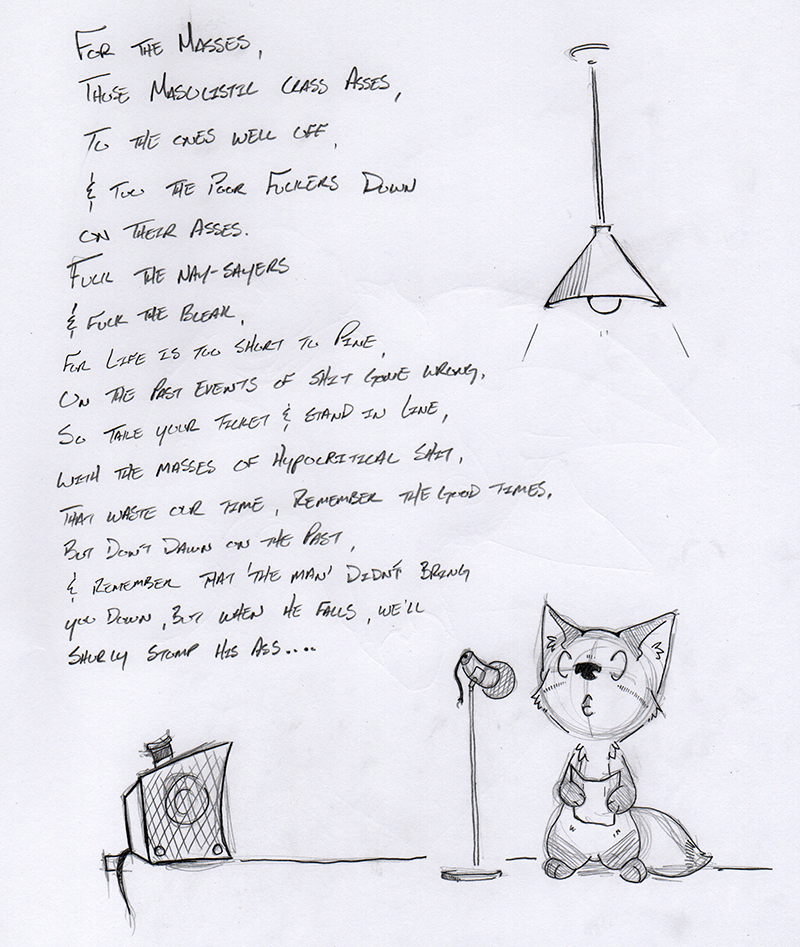 For the Masses,
Those Masolistic Crass Asses,
To the ones well off,
& Too the Poor Fuckers Down
on Their Asses.
Fuck the Nay-Sayers
& Fuck the Bleak,
For Life is too short to Pine,
On the Past Events of shit gone wrong,
So Take your Ticket & stand in Line,
with the masses of Hypocritical shit,
That waste our time, Remember the Good Times,
But Don't Dawn on the Past,
& Remember that 'The Man' Didn't Bring
you Down, But when He Falls, we'll
Shurly Stomp His Ass....